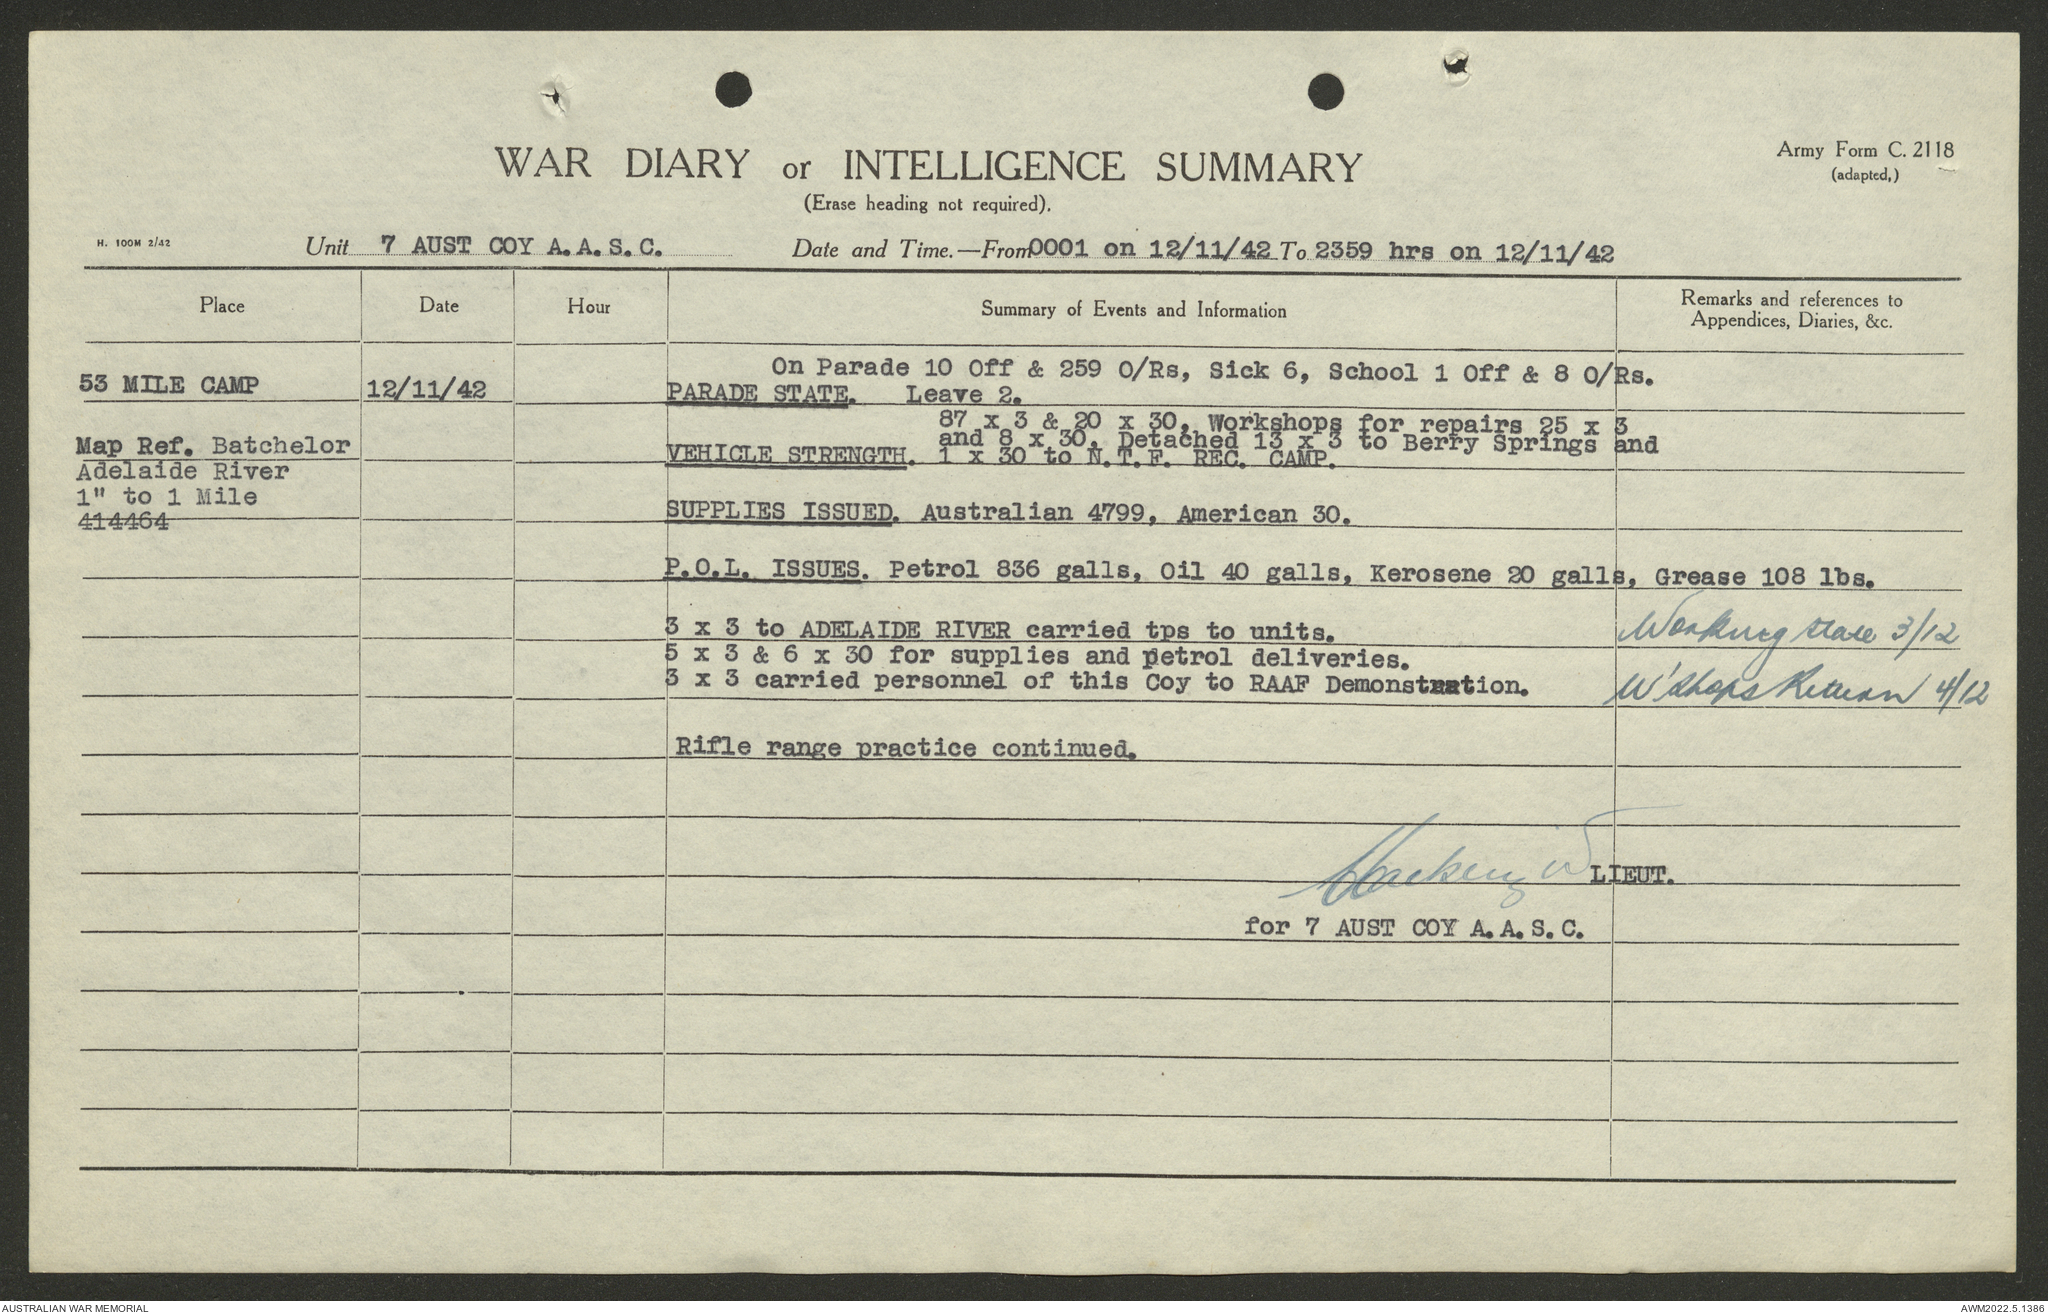 WAR DIARY or INTELLIGENCE SUMMARY
Army Form C. 2118
(adapted,)
(Erase heading not required).
H. 100M 2/42
Unit 7 AUST COY A.A.S.C. Date and Time.—From 0001 on 12/11/42 To 2359 hrs on 12/11/42
Place Date Hour Summary of Events and Information Remarks and references to
Appendices, Diaries, &c.
On Parade 10 Off & 259 O/Rs, Sick 6, School 1 Off & 8 O/Rs.
53 MILE CAMP 12/11/42 PARADE STATE. Leave 2.
87 x 3 & 20 x 30, Workshops for repairs 25 x 3
and 8 x 30, Detached 13 x 3 to Berry Springs and
Map Ref. Batchelor VEHICLE STRENGTH. 1 x 30 to N.T.F. REC. CAMP.
Adelaide River
1" to 1 Mile
414464 SUPPLIES ISSUED. Australian 4799, American 30.
P.O.L. ISSUES. Petrol 836 galls, Oil 40 galls, Kerosene 20 galls, Grease 108 lbs.
3 x 3 to ADELAIDE RIVER carried tps to units. Working State 3/12
5 x 3 & 6 x 30 for supplies and petrol deliveries.
3 x 3 carried personnel of this Coy to RAAF Demonstration. W'Shops Return 4/12
Rifle range practice continued.
LIEUT.
for 7 AUST COY A.A.S.C.
AUSTRALIAN WAR MEMORIAL AWM2022.5.1386